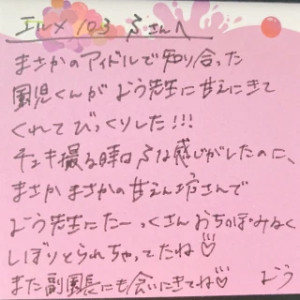 エルメ103 ふさんへ
まさかのアイドルで知り合った
園児くんがよう先生に甘えにきて
くれてびっくりした!!!
チェキ撮る時はふな感じがしたのに、
まさかまさかの甘えん坊さんで
よう先生にたーっくさんおちっぽみるく
しぼりとられちゃってたね♡
また副園長にも会いにきてね♡ よう